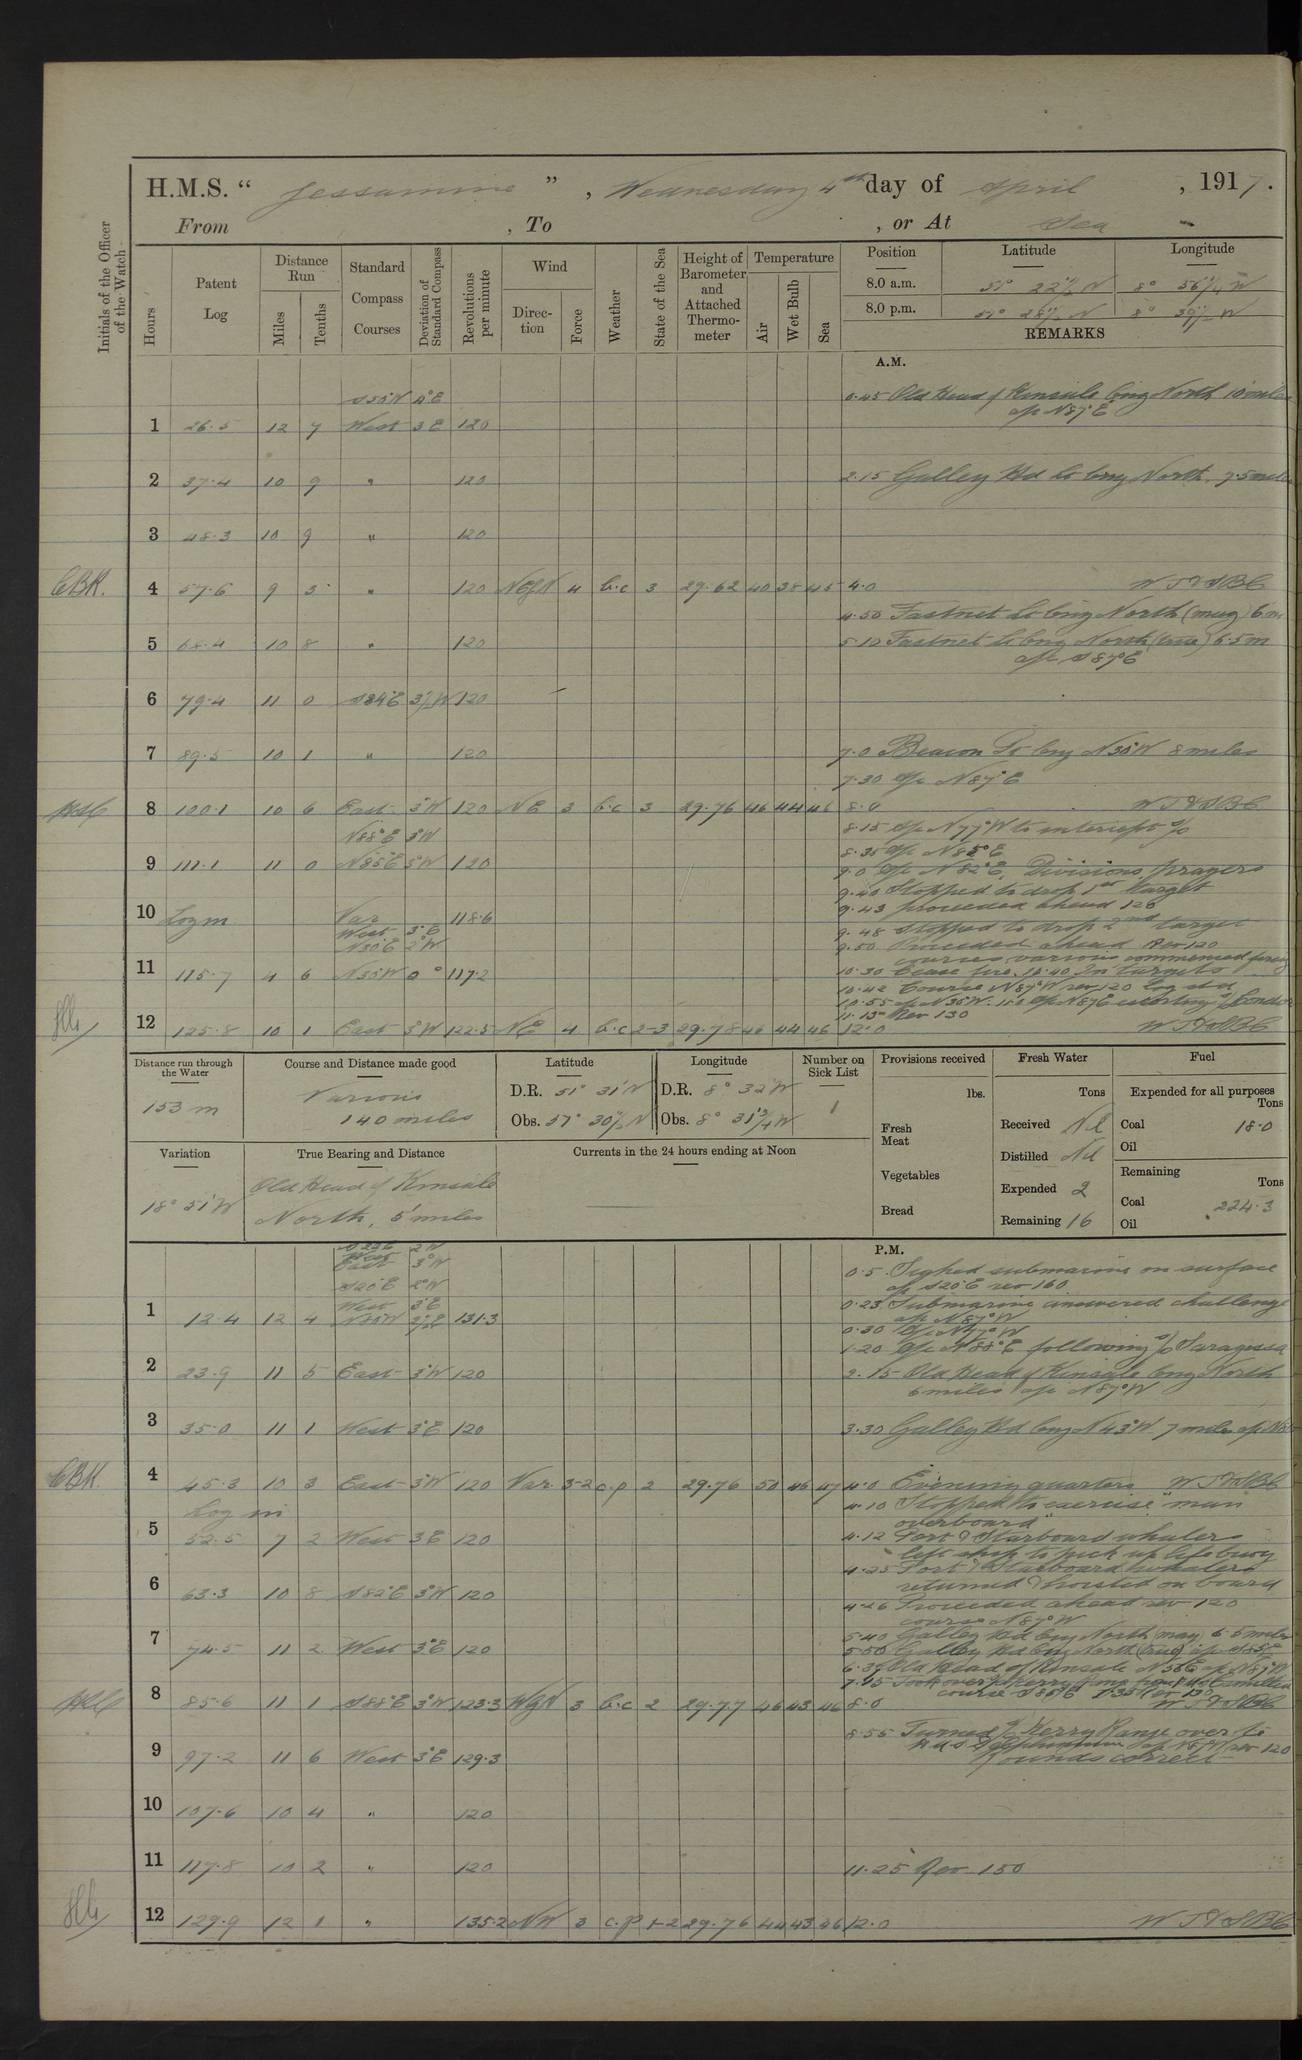 H.M.S. “ Jessamine ” , Wednesday 4th day of April , 1917.
From , To , or At Sea
Initials of the Officer of the Watch
Hours
Patent Log
Distance Run
Miles
Tenths
Standard Compass Courses
Deviation of Standard Compass
Revolutions per minute
Wind
Direction
Force
Weather
State of the Sea
Height of Barometer and Attached Thermometer
Temperature
Air
Wet Bulb
Sea
Position Latitude Longitude
8.0 a.m. 51° 22½ N 8° 56¼ W
8.0 p.m. 51° 28½ N 8° 39½ W
REMARKS
A.M.
0.45 Old Head of Kinsale brng North 10 miles
a/c N87°E
1 26.5 12 7 West 3°E 120
2 37.4 10 9 " 120 2.15 Galley Hd Lt brng North 7.5 miles
3 48.3 10 9 " 120
CBK. 4 57.6 9 3 " 120 NEyN 4 b.c 3 29.62 40 38 45 4.0
4.50 Fastnet Lt brng North (mag) 6 m
5 68.4 10 8 " 120 5.10 Fastnet Lt brng North (true) 6.5 m
a/c S87°E
6 79.4 11 0 S84°E 3½W 120
7 89.5 10 1 " 120 7.0 Beacon Lt brng N30°W 8 miles
7.30 a/c N87°E
8 100.1 10 6 East 3°W 120 NE 3 b.c 3 29.76 46 44 46 8.0
N88°E 3°W
8.15 a/c N77°W to intercept s/s
8.35 a/c N85°E
9 111.1 11 0 N85°E 3°W 120 9.0 a/c N82°E. Divisions prayers
9.40 Stopped to drop 1st target
9.43 proceeded ahead 120
10 Log in Var 118.6
West 3°E
N30°E 2°W
9.48 Stopped to drop 2nd target
9.50 Proceeded ahead Rev 120
courses various commenced firing
11 115.7 4 6 N35W 0° 117.2 10.30 Cease fire. 10.40 In targets
10.42 Course N87°W rev 120 log std
11.15 Rev 130
12 125.8 10 1 East 3°W 122.5 NE 4 b.c 2-3 29.78 46 44 46 12.0
Distance run through the Water
153 m
Course and Distance made good
Various
140 miles
Latitude
D.R. 51° 31' N
Obs. 51° 30½ N
Longitude
D.R. 8° 32' W
Obs. 8° 31¾ W
Number on Sick List
1
Provisions received
lbs.
Fresh Meat
Vegetables
Bread
Fresh Water
Tons
Received Nil
Distilled Nil
Expended 2
Remaining 16
Fuel
Expended for all purposes
Tons
Coal 18.0
Oil
Remaining
Tons
Coal 224.3
Oil
Variation
18° 51' W
True Bearing and Distance
Old Head of Kinsale
North, 5 miles
Currents in the 24 hours ending at Noon
P.M.
East 3°W
S20°E 2°W
West 3°E
0.5 Sighted submarine on surface
a/c S20°E rev 160
0.23 Submarine answered challenge
a/c N87°W
1 12.4 12 4 131.3
0.30 a/c N77°W
1.20 a/c N88°E following s/s Saragossa
2 23.9 11 5 East 3°W 120 2.15 Old Head of Kinsale brng North
6 miles a/c N87°W
3 35.0 11 1 West 3°E 120 3.30 Galley Hd brng N43°W 7 miles a/c
CBK. 4 45.3 10 3 East 3°W 120 Var. 3-2 c.p 2 29.76 50 46 47 4.0 Evening quarters
Log in
4.10 Stopped to exercise "man
overboard"
5 52.5 7 2 West 3°E 120 4.12 Port & Starboard whalers
left ship to pick up lifebuoy
4.25 Port & Starboard whalers
returned & hoisted on board
6 63.3 10 8 S82°E 3°W 120
4.26 Proceeded ahead rev 120
course N87°W
5.40 Galley Hd brng North (mag) 6.5 miles
7 74.5 11 2 West 3°E 120 5.50 Galley Hd brng North (true) a/c S85°E
Old Head of Kinsale N36E a/c N87°W
8 85.6 11 1 S88°E 3°W 123.3 WyN 3 b.c 2 29.77 46 43 46 8.0
8.55 Turned s/s Kerry Range over to
9 97.2 11 6 West 3°E 129.3 a/c N87W rev 120
Rounds correct
10 107.6 10 4 " 120
11 117.8 10 2 " 120 11.25 Rev 150
12 129.9 12 1 " 135.2 NW 3 c.p 1-2 29.76 44 43 46 12.0